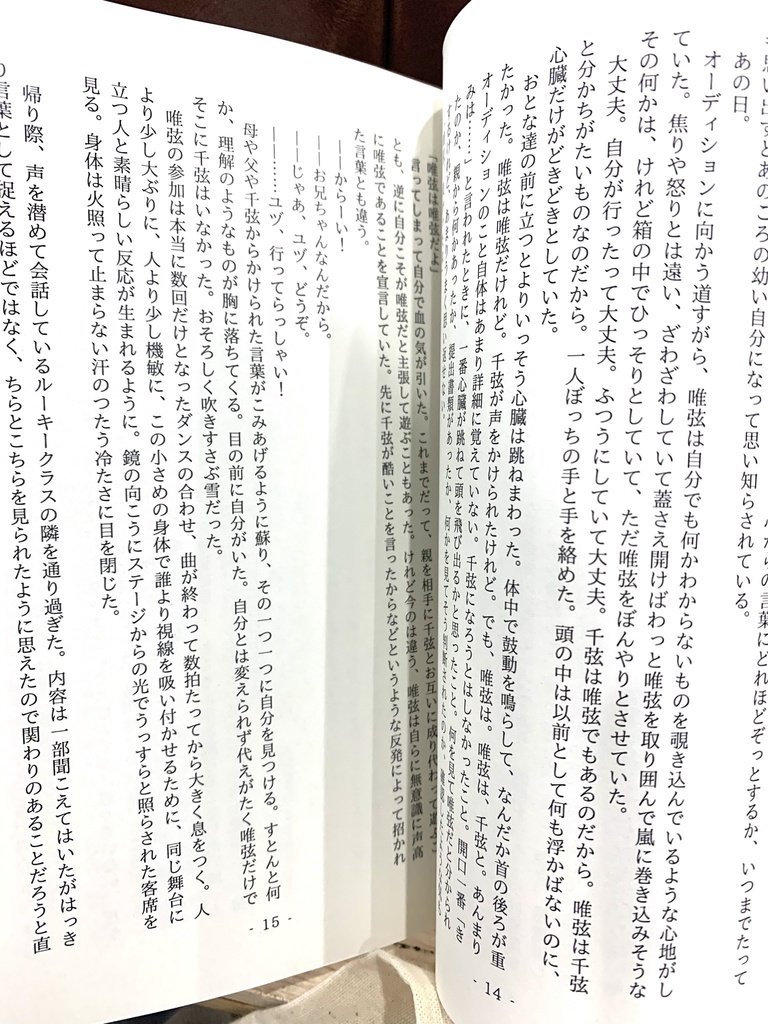 思い出すとあのころの幼い自分になって思い知らされている。
の言葉にどれほどぞっとするか、いつまでたって
あの日。
オーディションに向かう道すがら、唯弦は自分でも何かわからないものを覗き込んでいるような心地がし
ていた。焦りや怒りとは遠い、ざわざわしていて蓋さえ開けばわっと唯弦を取り囲んで嵐に巻き込みそうな
その何かは、けれど箱の中でひっそりとしていて、ただ唯弦をぼんやりとさせていた。
大丈夫。自分が行ったって大丈夫。ふつうにしていて大丈夫。千弦は唯弦でもあるのだから。唯弦は千弦
と分かちがたいものなのだから。一人ぼっちの手と手を絡めた。頭の中は以前として何も浮かばないのに、
心臓だけがどきどきとしていた。
おとな達の前に立つとよりいっそう心臓は跳ねまわった。体中で鼓動を鳴らして、なんだか首の後ろが重
たかった。唯弦は唯弦だけれど。千弦が声をかけられたけれど。でも、唯弦は。唯弦は、千弦と。あんまり
オーディションのこと自体はあまり詳細に覚えていない。千弦になろうとはしなかったこと。開口一番「き
みは……」と言われたときに、一番心臓が跳ねて頭を飛び出るかと思ったこと。何を見て唯弦だと分かられ
たのか、親から何かあったか、提出書類があったか、何かを見てそう判断されたのか
- 14 -
「唯弦は唯弦だよ」
言ってしまって自分で血の気が引いた。これまでだって、親を相手に千弦とお互いに成り代わって遊ぶこ
とも、逆に自分こそが唯弦だと主張して遊ぶこともあった。けれど今のは違う、唯弦は自らに無意識に声高
に唯弦であることを宣言していた。先に千弦が酷いことを言ったからなどというような反発によって招かれ
た言葉とも違う。
――からーい！
――お兄ちゃんなんだから。
――じゃあ、ユヅ、どうぞ。
――……ユヅ、行ってらっしゃい！
母や父や千弦からかけられた言葉がこみあげるように蘇り、その一つ一つに自分を見つける。すとんと何
か、理解のようなものが胸に落ちてくる。目の前に自分がいた。自分とは変えられず代えがたく唯弦だけで
そこに千弦はいなかった。おそろしく吹きすさぶ雪だった。
唯弦の参加は本当に数回だけとなったダンスの合わせ、曲が終わって数拍たってから大きく息をつく。人
より少し大ぶりに、人より少し機敏に、この小さめの身体で誰より視線を吸い付かせるために、同じ舞台に
立つ人と素晴らしい反応が生まれるように。鏡の向こうにステージからの光でうっすらと照らされた客席を
見る。身体は火照って止まらない汗のつたう冷たさに目を閉じた。
帰り際、声を潜めて会話しているルーキークラスの隣を通り過ぎた。内容は一部聞こえてはいたがはっき
り言葉として捉えるほどではなく、ちらとこちらを見られたように思えたので関わりのあることだろうと直
- 15 -